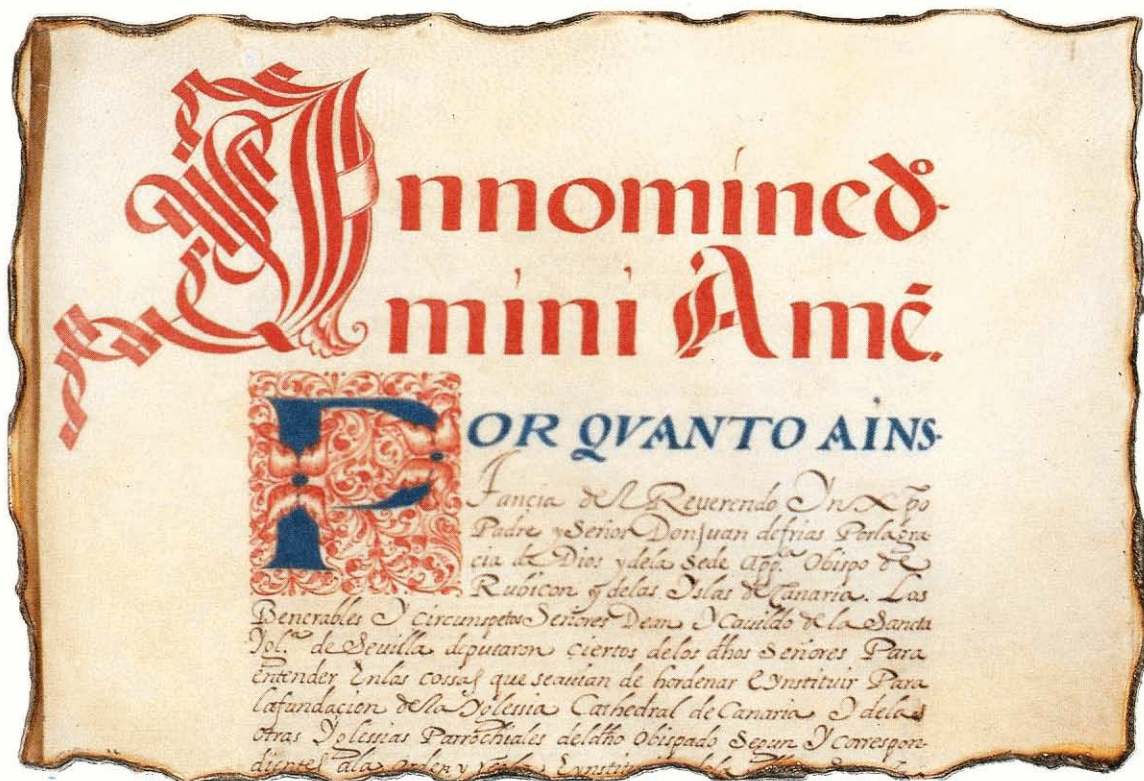 Innomined.º
mini Amē.
POR QVANTO AINS-
tançia del Reuerendo In Xpō
Padre y Señor Don Juan defrias Porlagra
cia de Dios ydela Sede App.ª Obispo de
Rubicon y delas Yslas de Canaria. Los
Benerables Y circunspetos Señores Dean Y Cauildo de la Sancta
Igl.ª de Seuilla deputaron ciertos delos dhos Señores Para
entender Enlas cossas que seauian de hordenar E Ynstituir Para
lafundacion de la Yglessia Cathedral de Canaria Y delas
otras Yglessias Parrochiales deldho obispado Segun Y correspon-
dientes ala orden y